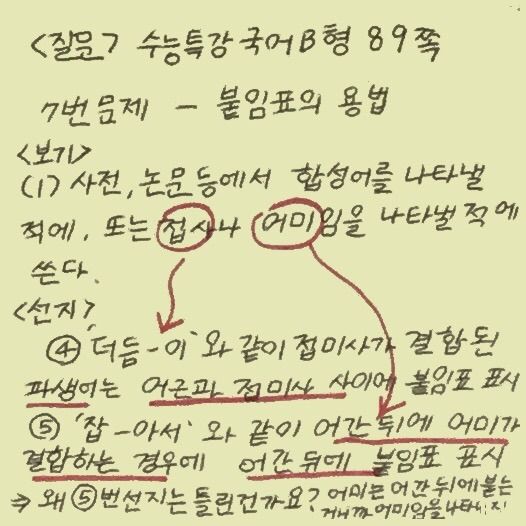 <질문> 수능특강 국어B형 89쪽
7번문제 - 붙임표의 용법
<보기>
(1) 사전, 논문 등에서 합성어를 나타낼
적에, 또는 접사나 어미임을 나타낼 적에
쓴다.
<선지>
④ '더듬-이'와 같이 접미사가 결합된
파생어는 어근과 접미사 사이에 붙임표 표시
⑤ '잡-아서'와 같이 어간 뒤에 어미가
결합하는 경우에 어간 뒤에 붙임표 표시
⇒ 왜 ⑤번선지는 틀린건가요? 어미는 어간 뒤에 붙는
거니까 어미임을 나타내